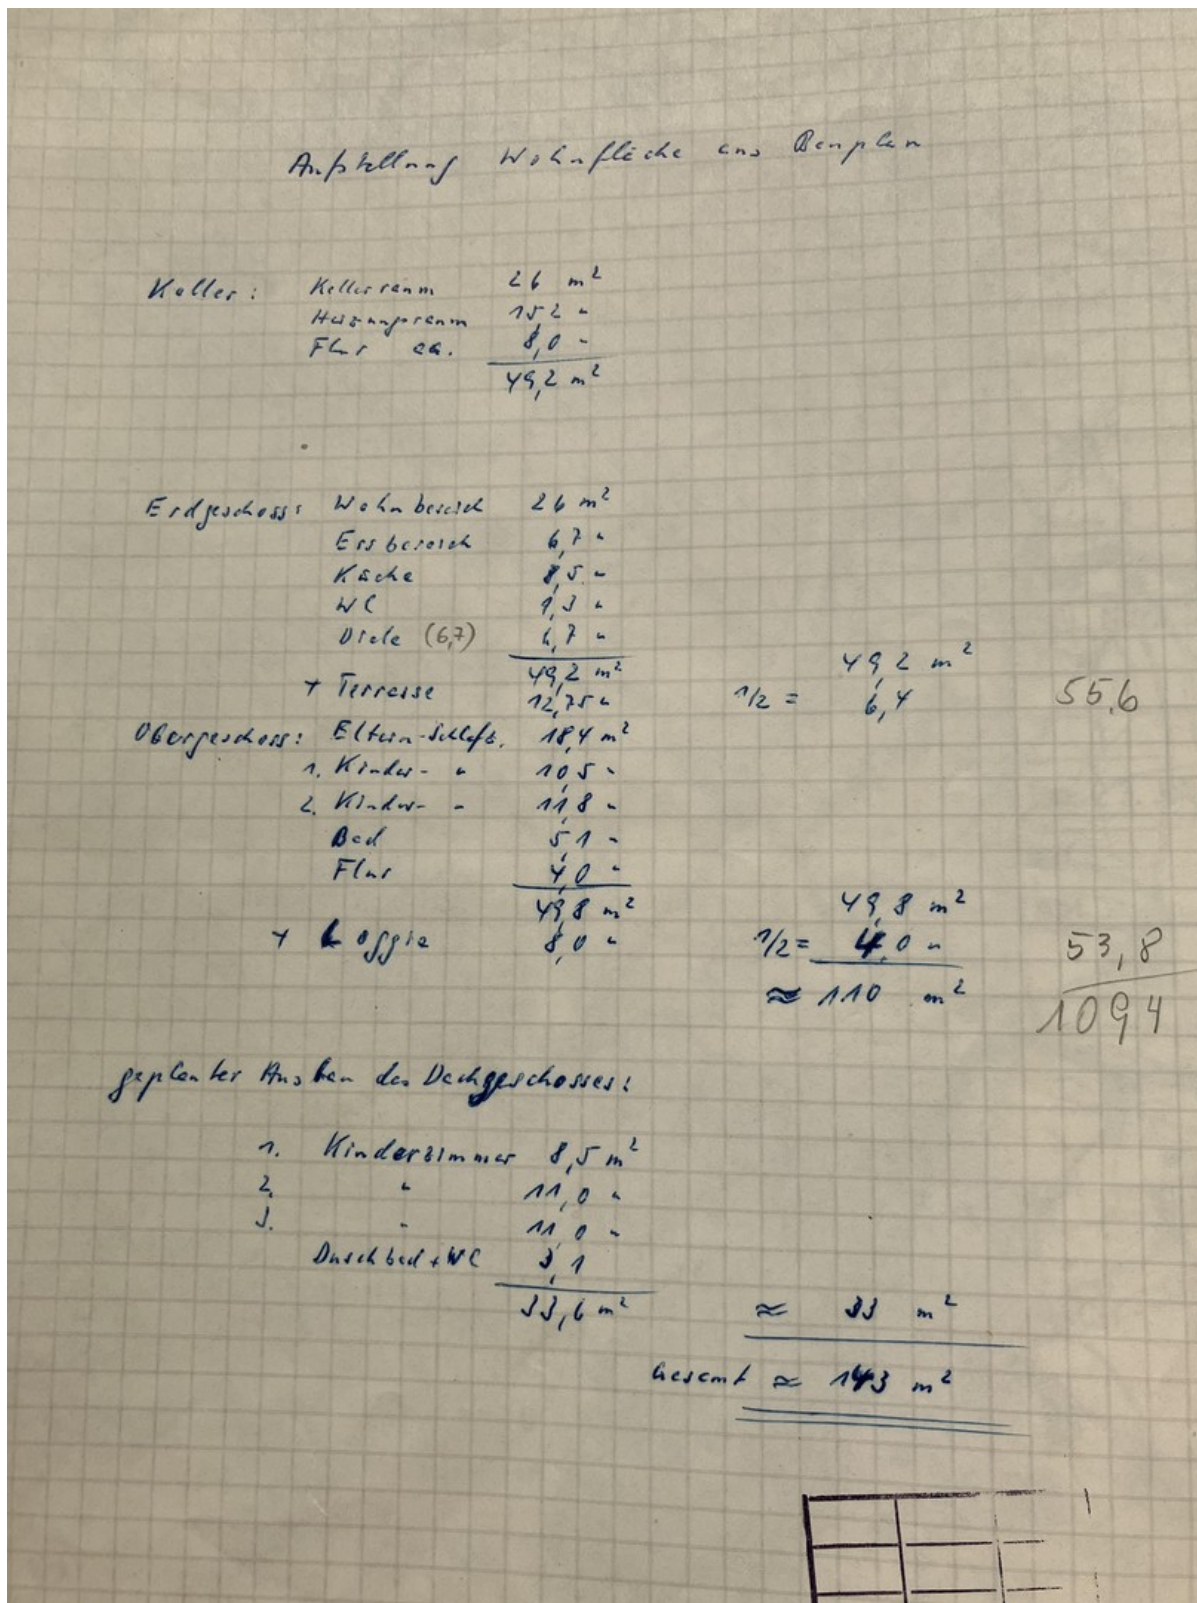 Aufstellung Wohnfläche aus Bauplan
Keller: Kellerraum 26 m²
Heizungsraum 15,2 "
Flur ca. 8,0 "
49,2 m²
Erdgeschoss: Wohnbereich 26 m²
Essbereich 6,7 "
Küche 8,5 "
WC 1,3 "
Diele (6,7) 6,7 "
49,2 m² 49,2 m²
+ Terrasse 12,75 " 1/2 = 6,4 55,6
Obergeschoss: Eltern-Schlafz. 18,4 m²
1. Kinder- " 10,5 "
2. Kinder- " 11,8 "
Bad 5,1 "
Flur 4,0 "
49,8 m² 49,8 m²
+ Loggia 8,0 " 1/2 = 4,0 " 53,8
≈ 110 m² 109,4
geplanter Ausbau des Dachgeschosses:
1. Kinderzimmer 8,5 m²
2. " 11,0 "
3. " 11,0 "
Duschbad + WC 3,1
33,6 m² ≈ 33 m²
Gesamt ≈ 143 m²